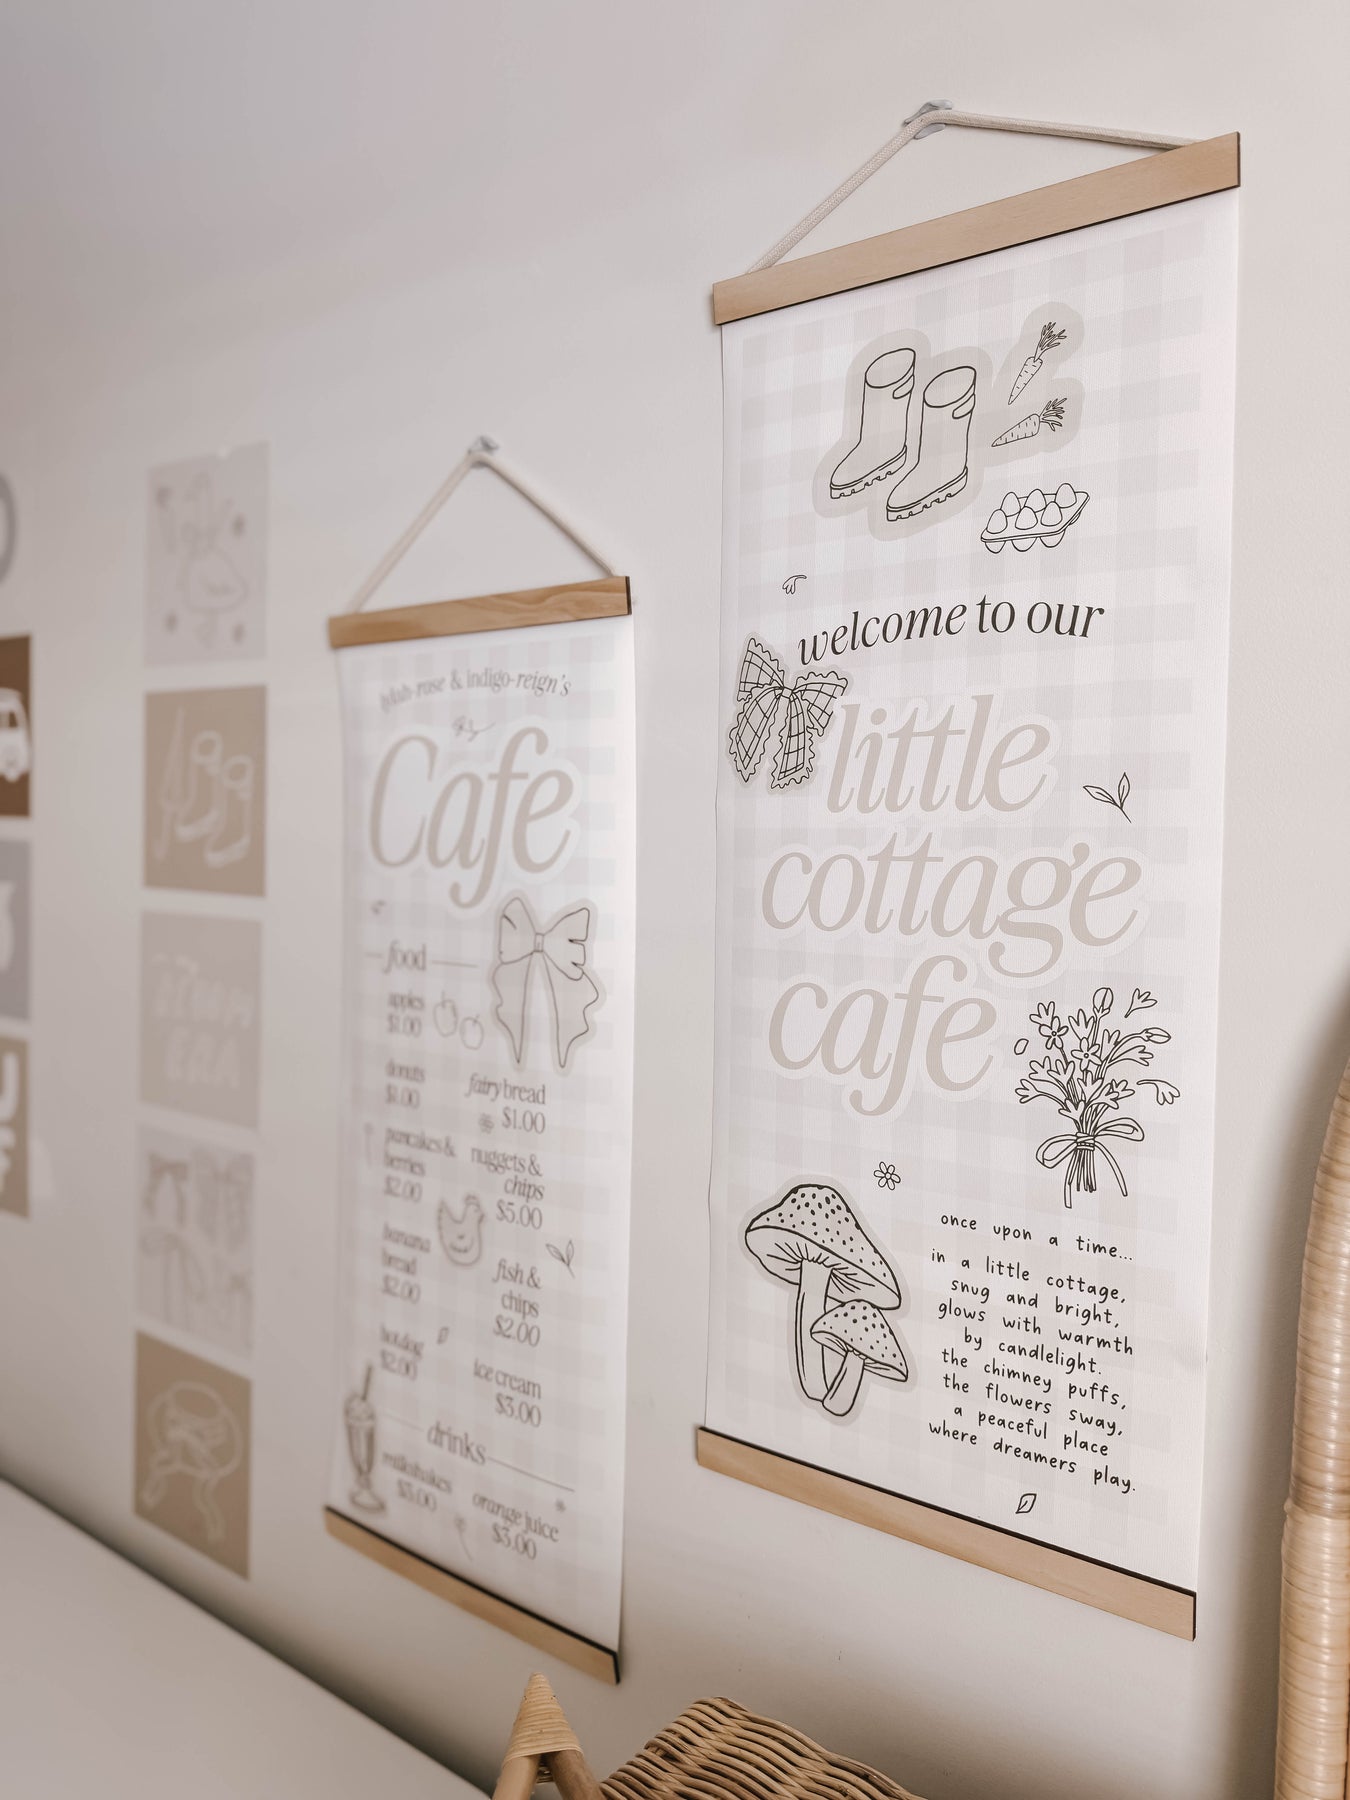 & indigo-reign's
Cafe
food
apples
$1.00
donuts
$1.00
pancakes &
berries
$2.00
banana
bread
$2.00
hotdog
$2.00
fairy bread
$1.00
nuggets &
chips
$5.00
fish &
chips
$2.00
ice cream
$3.00
drinks
milkshakes
$3.00
orange juice
$3.00
welcome to our
little
cottage
cafe
once upon a time...
in a little cottage,
snug and bright,
glows with warmth
by candlelight.
the chimney puffs,
the flowers sway,
a peaceful place
where dreamers play.